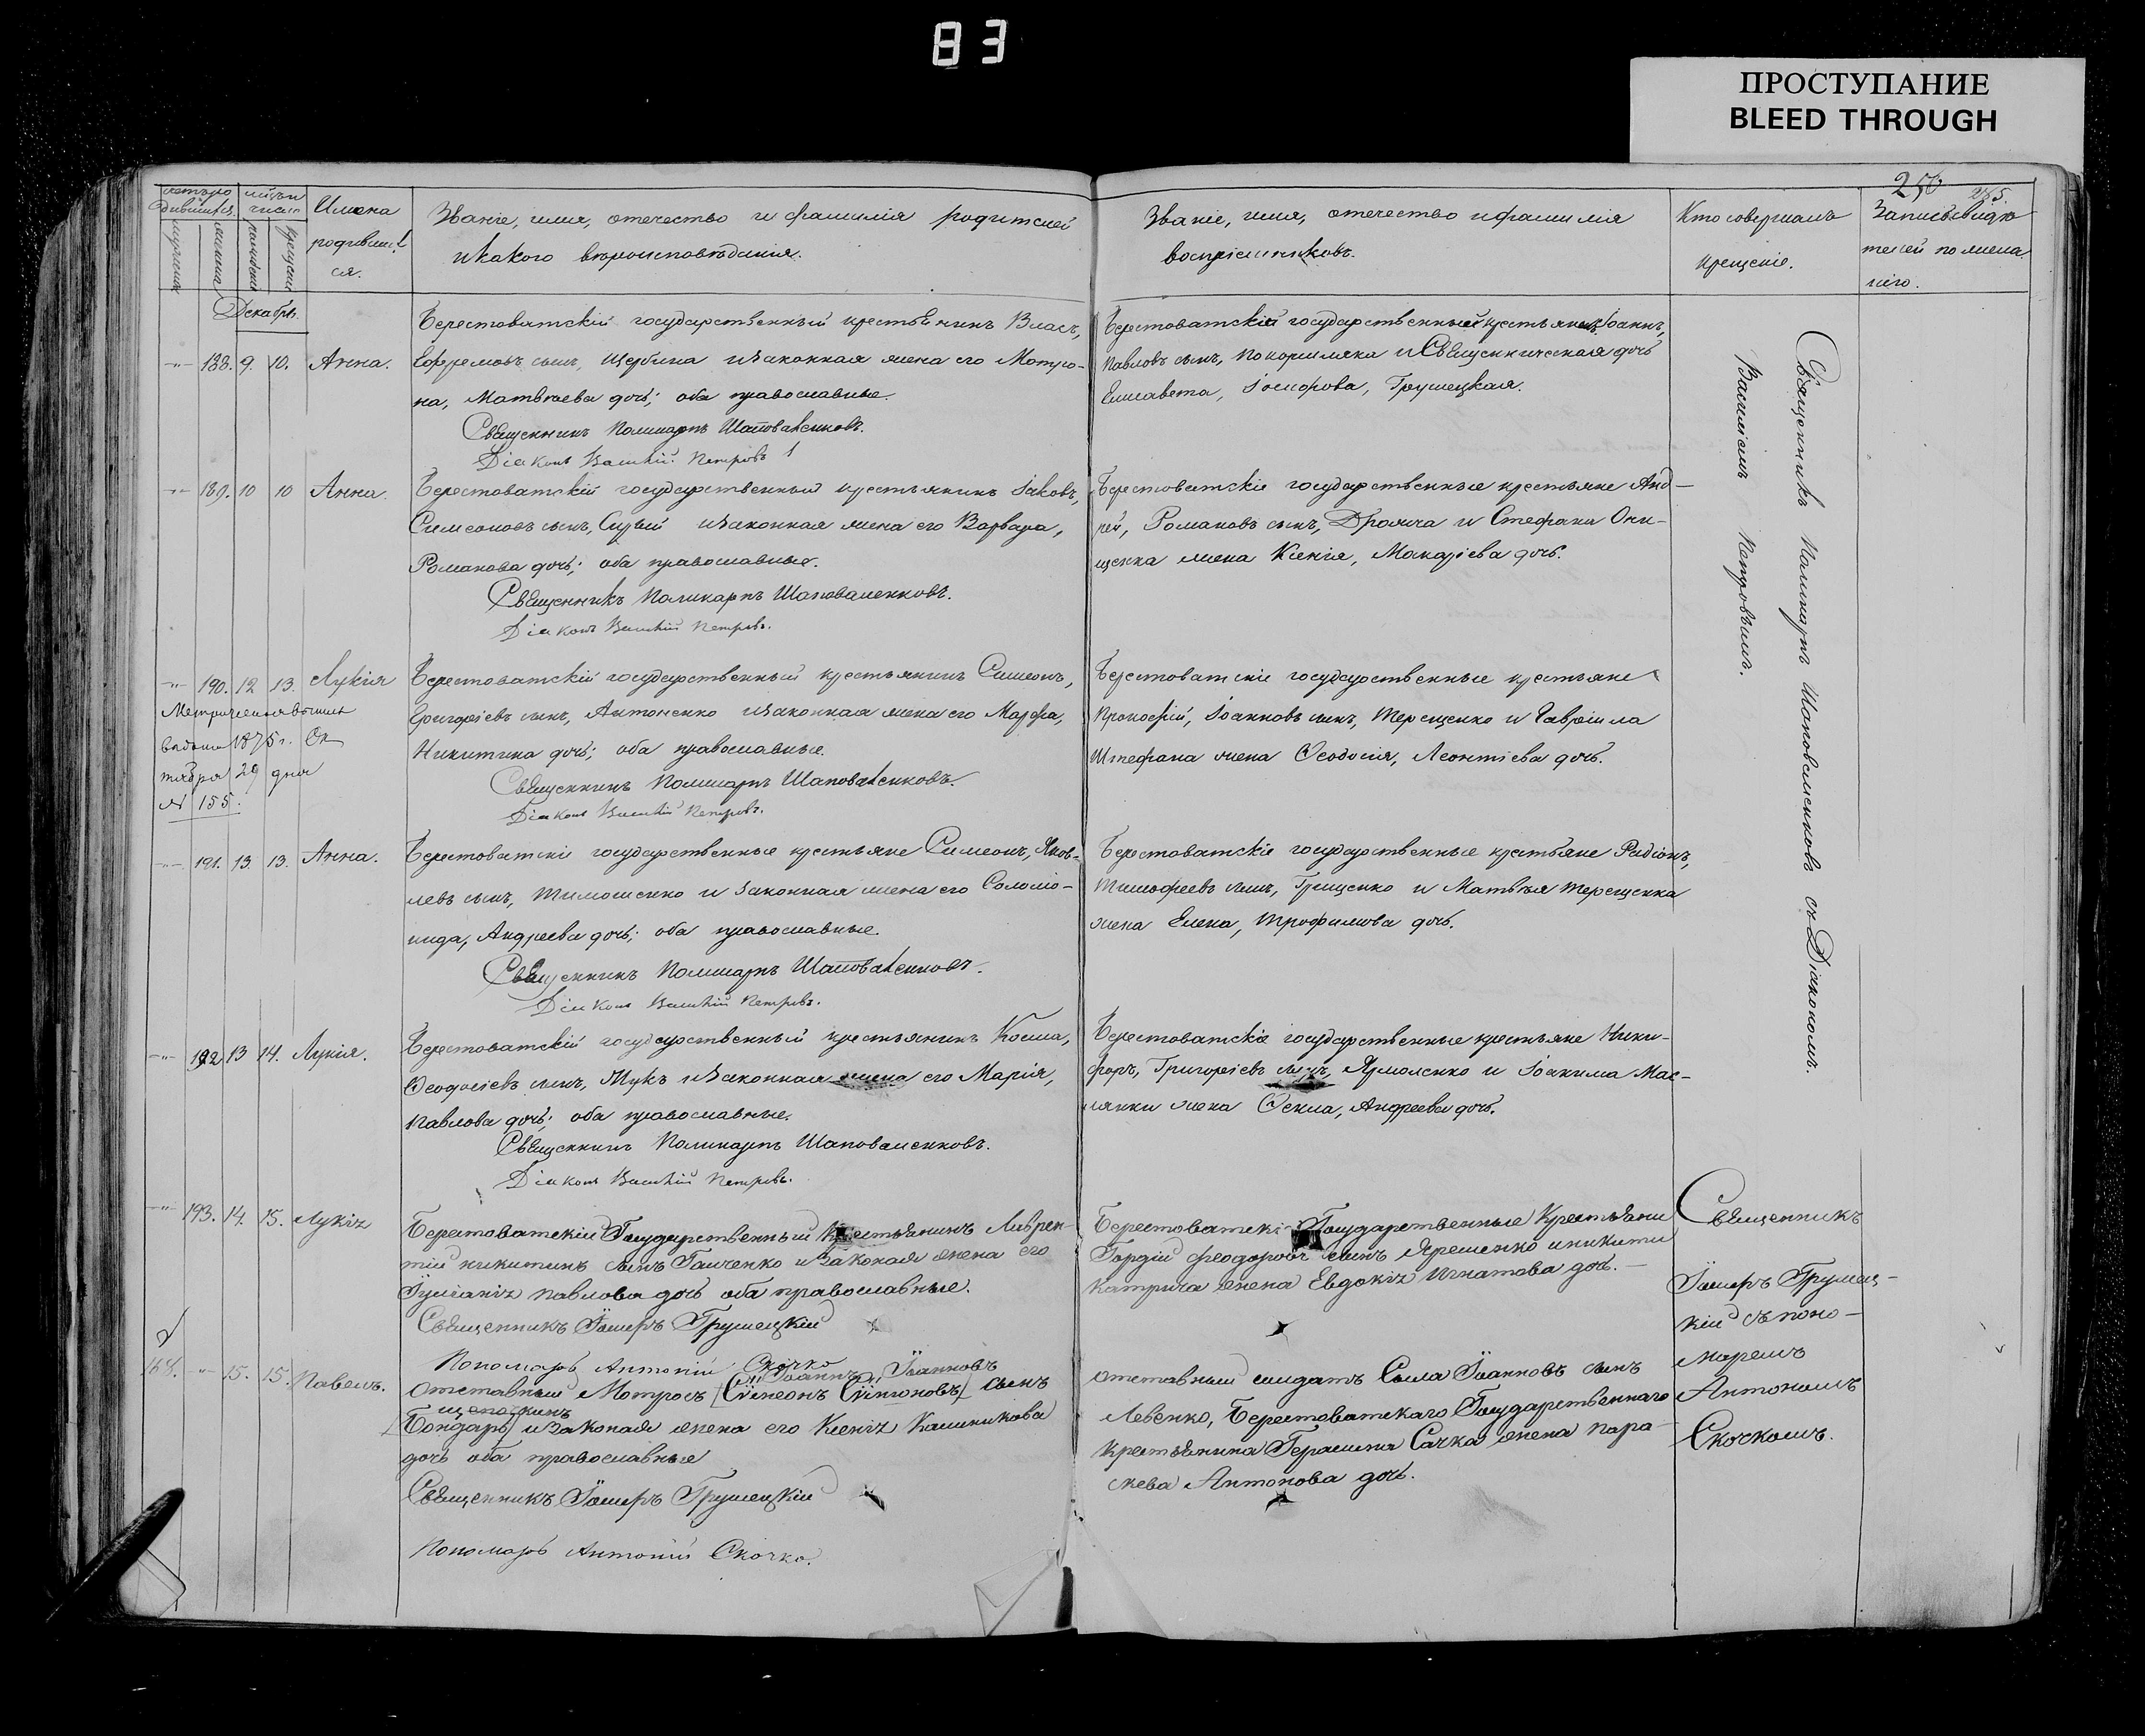 83
ПРОСТУПАНИЕ
BLEED THROUGH
250
285.
Счетъ родившихся.
Мѣсяцъ и число
Имена родившихся.
Званіе, имя, отечество и фамилія родителей
и какого вѣроисповѣданія.
Званіе, имя, отечество и фамилія
воспріемниковъ.
Кто совершалъ
крещеніе.
мужеска
женска
рожденія
крещенія
Декабрь.
188. 9. 10. Анна.
Берестоватскій государственный крестьянинъ Власъ,
Ефремовъ сынъ, Щербина и законная жена его Матро-
на, Матвѣева дочь; оба православные.
Священникъ Поликарпъ Шаповаленковъ.
Діаконъ Василій Петровъ
Берестоватскій государственный крестьянинъ Іоаннъ,
Павловъ сынъ, и Священническая дочь
Елисавета, Іосифова, Грушецкая.
Священникъ Поликарпъ Шаповаленковъ съ Діакономъ
Василіемъ Петровымъ.
189. 10 10 Анна.
Берестоватскій государственный крестьянинъ Іаковъ,
Симеоновъ сынъ, и законная жена его Варвара,
Романова дочь; оба православные.
Священникъ Поликарпъ Шаповаленковъ.
Діаконъ Василій Петровъ.
Берестоватскіе государственные крестьяне Анд-
рей, Романовъ сынъ, и Стефана Они-
щенка жена Ксенія, Макаріева дочь.
190. 12 13. Лукія
Метрическая выпись
выдана 1875 г. Ок
тября 29 дня
№ 155.
Берестоватскій государственный крестьянинъ Симеонъ,
Григоріевъ сынъ, Антоненко и законная жена его Марфа,
Никитина дочь; оба православные.
Священникъ Поликарпъ Шаповаленковъ.
Діаконъ Василій Петровъ.
Берестоватскіе государственные крестьяне
Прокофій, Іоанновъ сынъ, Терещенко и Гавріила
Штефана жена Ѳеодосія, Леонтіева дочь.
191. 13. 13. Анна.
Берестоватскіе государственные крестьяне Симеонъ, Яков-
левъ сынъ, Тимошенко и законная жена его Соломо-
нида, Андреева дочь; оба православные.
Священникъ Поликарпъ Шаповаленковъ.
Діаконъ Василій Петровъ.
Берестоватскіе государственные крестьяне Радіонъ,
Тимофеевъ сынъ, Грищенко и Матвѣя Терещенка
жена Елена, Трофимова дочь.
192 13 14. Лукія.
Берестоватскій государственный крестьянинъ Косма,
Ѳеодосіевъ сынъ, Жукъ и законная жена его Марія,
Павлова дочь; оба православные.
Священникъ Поликарпъ Шаповаленковъ.
Діаконъ Василій Петровъ.
Берестоватскіе государственные крестьяне Ники-
форъ, Григоріевъ сынъ, Ярмоленко и Іоакима Мас-
лянки жена Ѳекла, Андреева дочь.
193. 14. 15. Лукія
Берестоватскій Государственный Крестьянинъ Лаврен-
тій Никитинъ сынъ Ганченко и законая жена его
Іуліанія Павлова дочь оба православные.
Священникъ Іосифъ Грушецкій
Пономарь Антоній Скочко
Берестоватскіе Государственные Крестьяни
Гордій Феодоровъ сынъ Яременко и Никити
Катрича жена Евдокія Игнатова дочь.
Священникъ
Іосифъ Грушец-
кій съ поно-
маремъ
Антоніемъ
Скочкомъ.
168. 15. 15. Павелъ.
Іоаннъ Іоанновъ
Отставный Матросъ [Сѵмеонъ Сѵмеоновъ] сынъ
[Бондарь] и законая жена его Ксенія Калиникова
дочь оба православные
Священникъ Іосифъ Грушецкій
Пономарь Антоній Скочко.
отставный солдатъ Сыла Іоанновъ сынъ
Левенко, Берестоватскаго Государственнаго
Крестьянина Герасима Сачка жена Пара-
скева Антонова дочь.